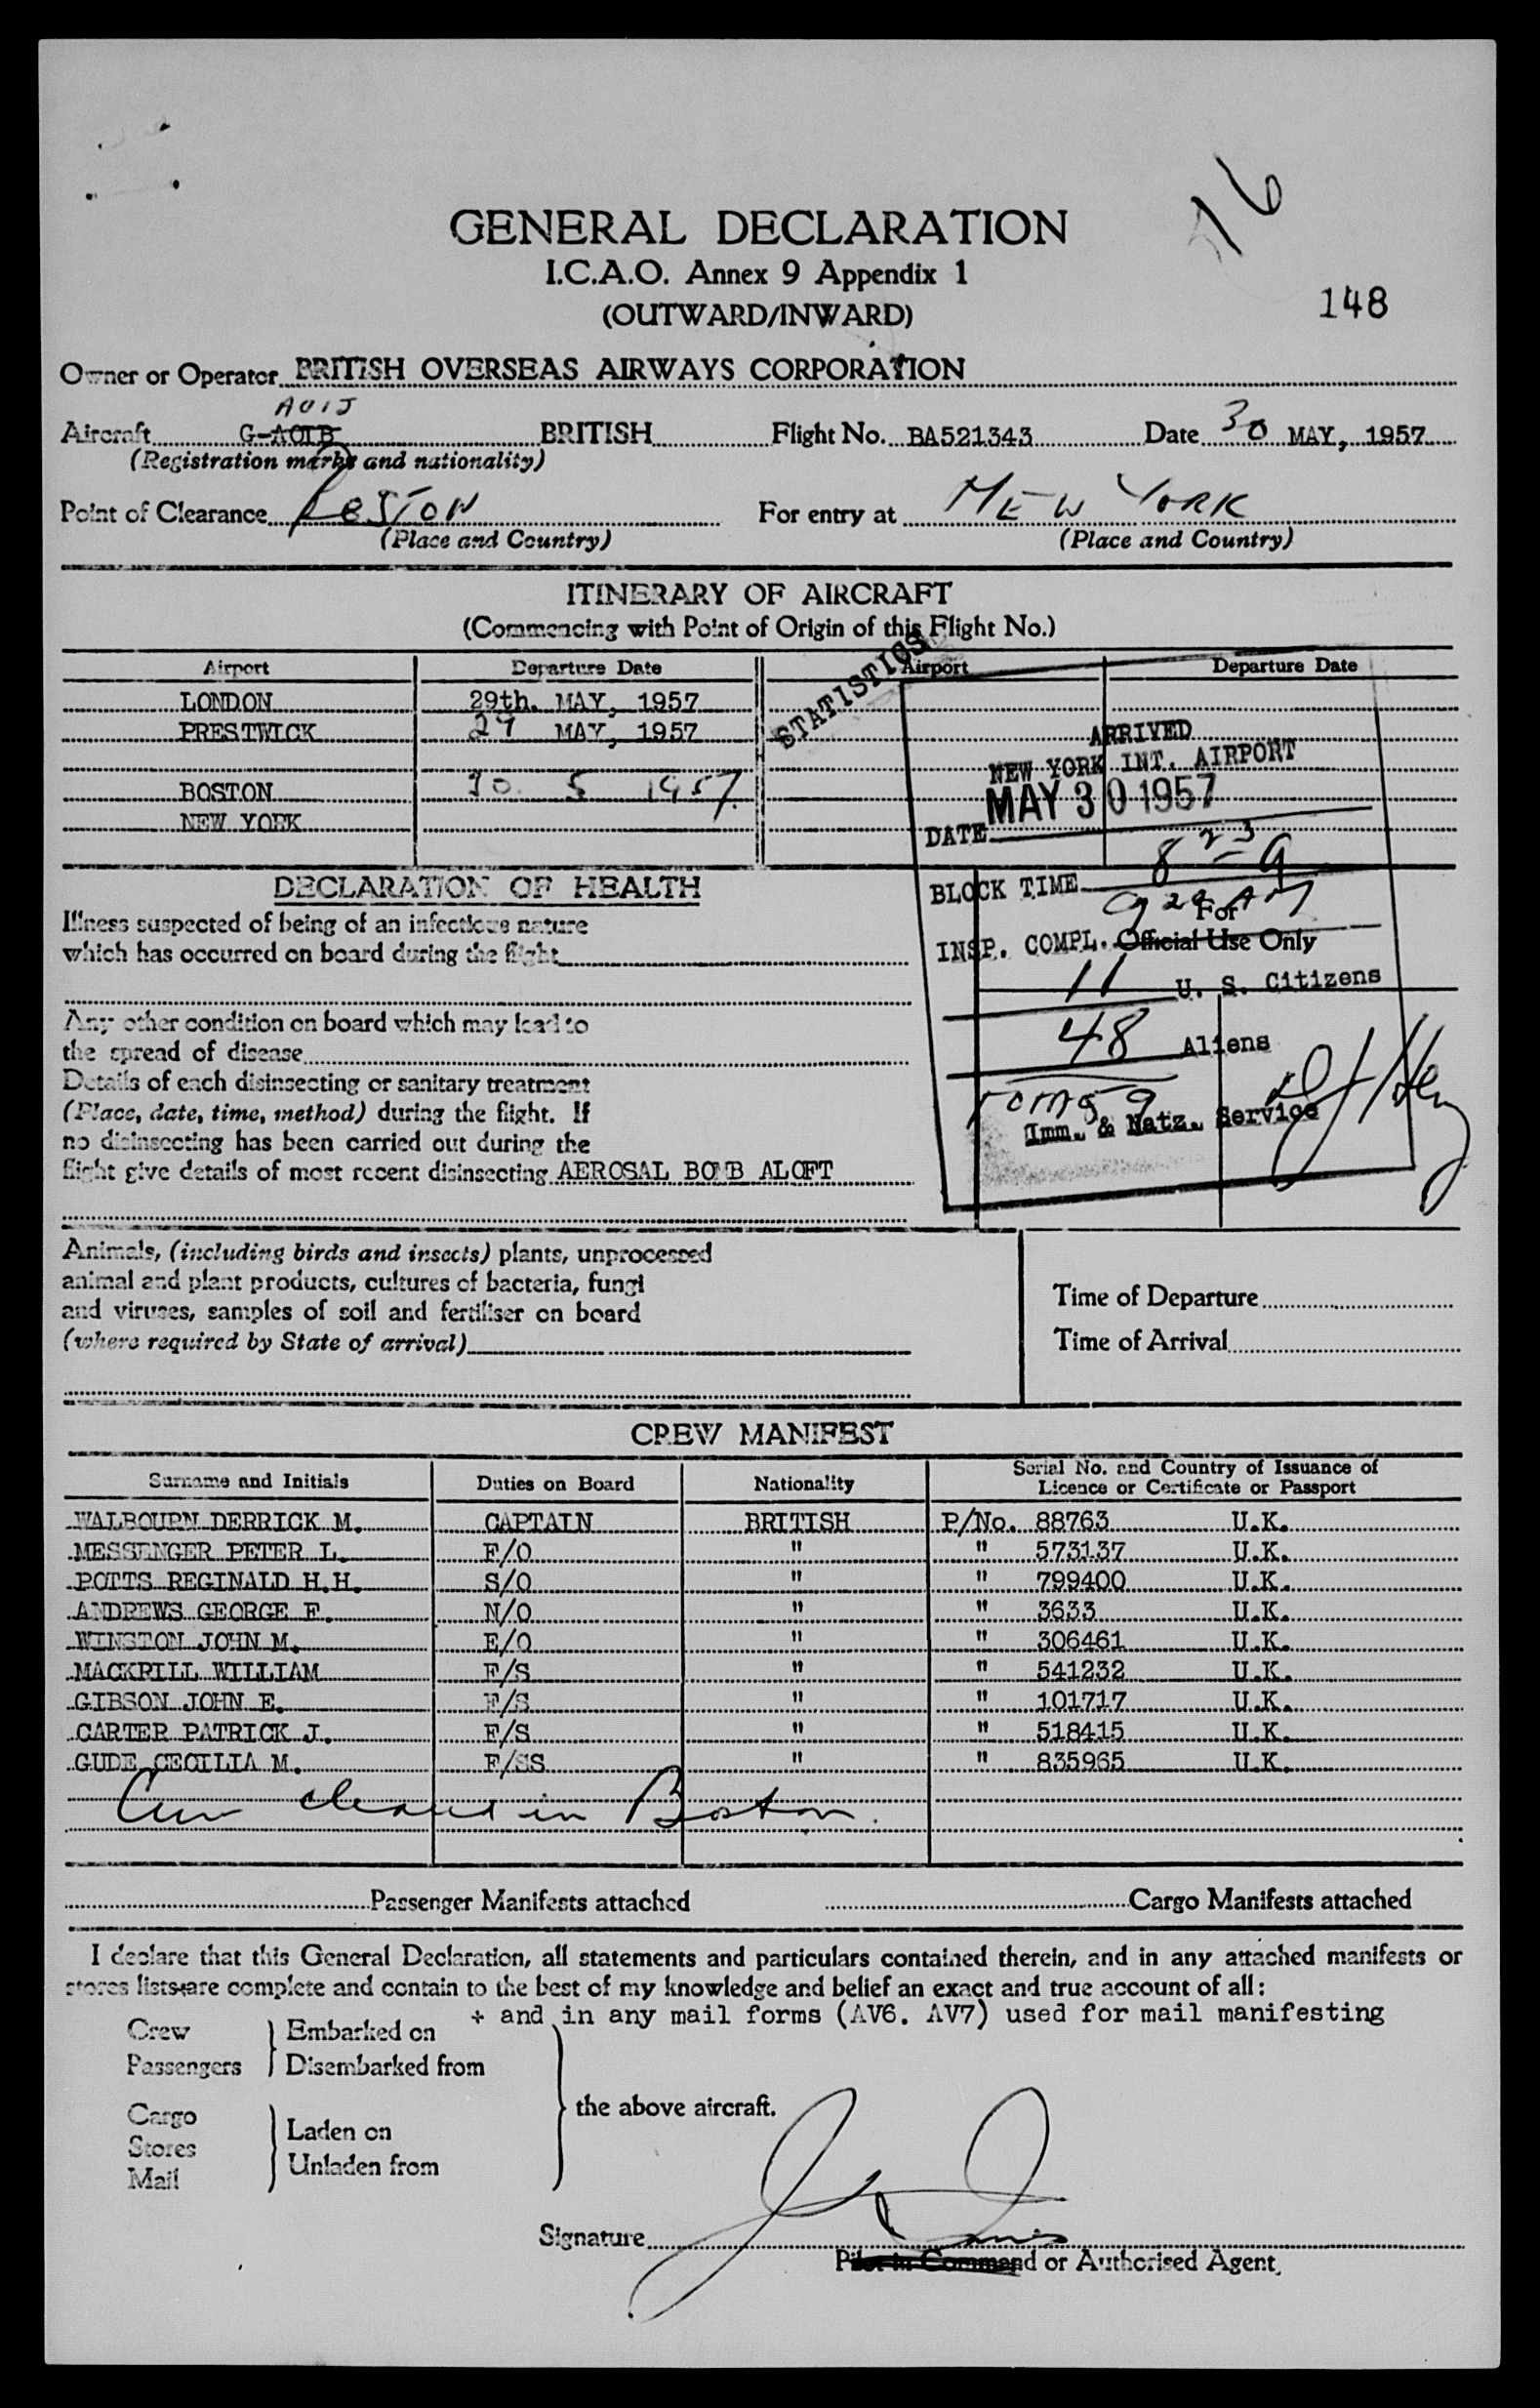 16
GENERAL DECLARATION
I.C.A.O. Annex 9 Appendix 1
(OUTWARD/INWARD)
148
Owner or Operator BRITISH OVERSEAS AIRWAYS CORPORATION
AOIJ
Aircraft G-AOIB BRITISH Flight No. BA521343 Date 30 MAY, 1957
(Registration marks and nationality)
Point of Clearance BOSTON For entry at NEW YORK
(Place and Country) (Place and Country)
ITINERARY OF AIRCRAFT
(Commencing with Point of Origin of this Flight No.)
STATISTICS
Airport Departure Date Airport Departure Date
LONDON 29th. MAY, 1957
PRESTWICK 29 MAY, 1957
BOSTON 30 5 1957
NEW YORK
ARRIVED
NEW YORK INT. AIRPORT
DATE MAY 30 1957
BLOCK TIME 8 23 A
INSP. COMPL. 9 20 AM
For
Official Use Only
11 U. S. Citizens
48 Aliens
59
Imm. & Natz. Service
DECLARATION OF HEALTH
Illness suspected of being of an infectious nature
which has occurred on board during the flight
Any other condition on board which may lead to
the spread of disease
Details of each disinsecting or sanitary treatment
(Place, date, time, method) during the flight. If
no disinsecting has been carried out during the
flight give details of most recent disinsecting AEROSAL BOMB ALOFT
Animals, (including birds and insects) plants, unprocessed
animal and plant products, cultures of bacteria, fungi
and viruses, samples of soil and fertiliser on board
(where required by State of arrival)
Time of Departure
Time of Arrival
CREW MANIFEST
Surname and Initials Duties on Board Nationality Serial No. and Country of Issuance of Licence or Certificate or Passport
WALBOURN DERRICK M. CAPTAIN BRITISH P/No. 88763 U.K.
MESSENGER PETER L. F/O " " 573137 U.K.
POTTS REGINALD H.H. S/O " " 799400 U.K.
ANDREWS GEORGE F. N/O " " 3633 U.K.
WINSTON JOHN M. E/O " " 306461 U.K.
MACKRILL WILLIAM F/S " " 541232 U.K.
GIBSON JOHN E. F/S " " 101717 U.K.
CARTER PATRICK J. F/S " " 518415 U.K.
GUDE CECILIA M. F/SS " " 835965 U.K.
Crew cleared in Boston.
Passenger Manifests attached Cargo Manifests attached
I declare that this General Declaration, all statements and particulars contained therein, and in any attached manifests or
stores lists+are complete and contain to the best of my knowledge and belief an exact and true account of all:
+ and in any mail forms (AV6. AV7) used for mail manifesting
Crew Embarked on
Passengers Disembarked from
the above aircraft.
Cargo
Stores Laden on
Mail Unladen from
Signature
Pilot in Command or Authorised Agent.